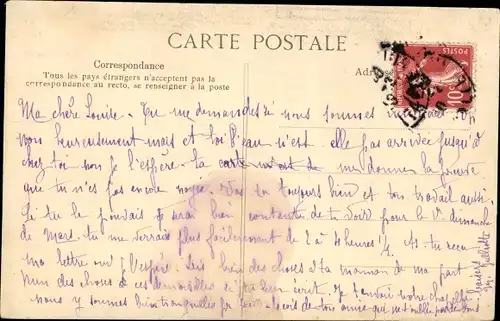 CARTE POSTALE
Correspondance
Tous les pays étrangers n'acceptent pas la
correspondance au recto, se renseigner à la poste
Adres
POSTES
10
Ma chère Louise. Tu me demandes si nous sommes
non heureusement mais et toi l'eau n'est elle pas arrivée jusqu'à
chez toi non je l'espère. Ta carte me donne la preuve
que tu n'es pas encore noyée. Vas tu toujours bien et ton travail aussi.
Si tu le pouvais je serai bien contente de te voir pour le 1er dimanche
de Mars. tu me verrais plus facilement de 2 à 4 heures 1/2. As-tu reçu
ma lettre oui j'espère. Dis bien des choses à ta maman de ma part
bien des choses à ces demoiselles si tu leur écris. Je t'envoie notre chapelle
nous y sommes bien tranquilles
baisers
Juliette